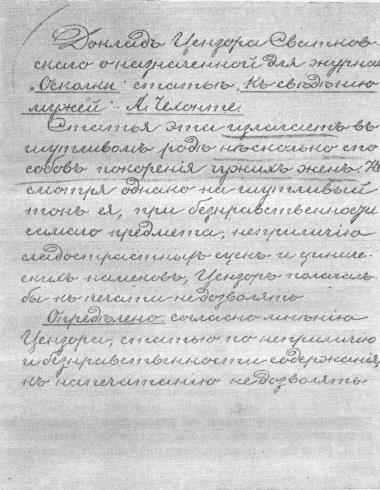 Докладъ Цензора Сватков-
скаго о назначенной для журнала
„Осколки“ статьѣ „Къ свѣдѣнію
мужей“ – А. Чехонте.
Статья эта излагаетъ въ
шутливомъ родѣ нѣсколько спо
собовъ покоренія чужихъ женъ. Не
смотря однако на шутливый
тонъ ея, при безнравственности
самаго предмета, неприличію
сладострастныхъ сценъ и цинич-
скихъ намековъ, Цензоръ полагалъ
бы къ печати не дозволять
Опредѣлено: согласно мнѣнію
Цензора, статью по неприличію
и безнравственности содержанія,
къ напечатанію не дозволять